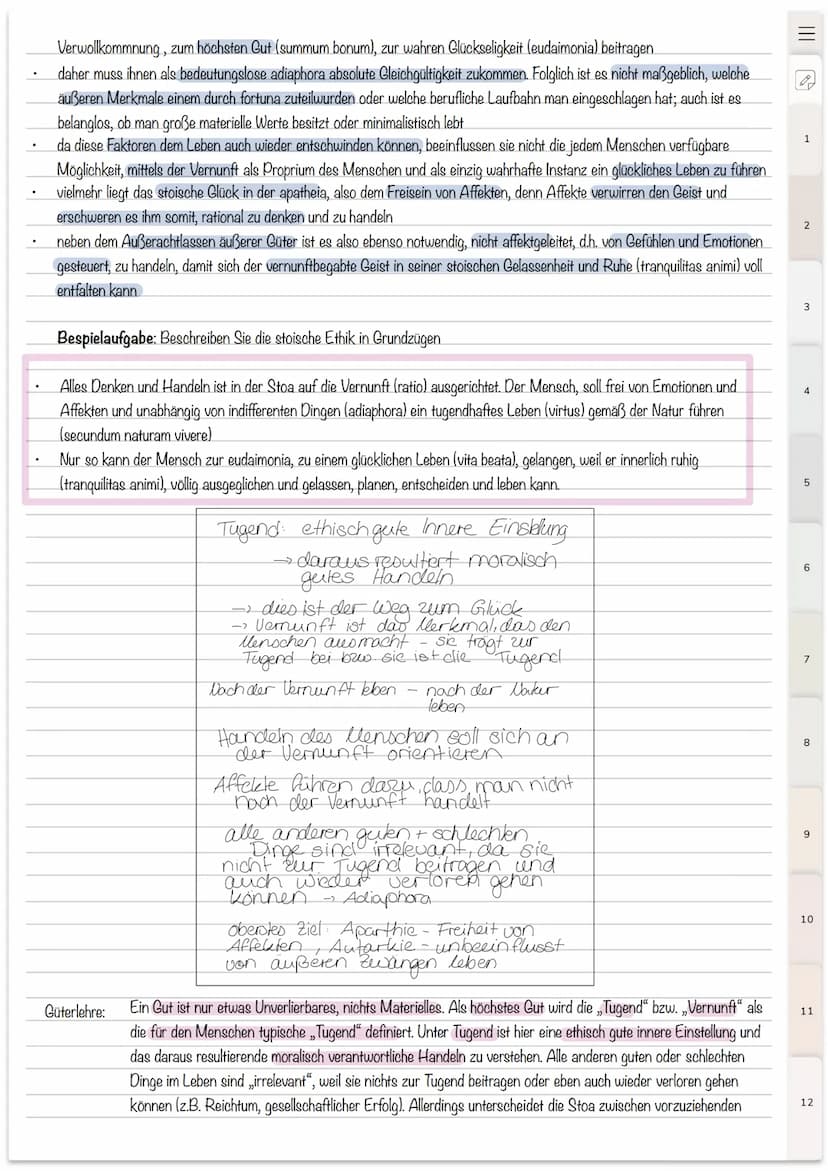 Verwollkommnung , zum höchsten Gut (summum bonum), zur wahren Glückseligkeit (eudaimonia) beitragen
• daher muss ihnen als bedeutungslose adiaphora absolute Gleichgültigkeit zukommen. Folglich ist es nicht maßgeblich, welche
äußeren Merkmale einem durch fortuna zuteilwurden oder welche berufliche Laufbahn man eingeschlagen hat; auch ist es
belanglos, ob man große materielle Werte besitzt oder minimalistisch lebt
• da diese Faktoren dem Leben auch wieder entschwinden können, beeinflussen sie nicht die jedem Menschen verfügbare
Möglichkeit, mittels der Vernunft als Proprium des Menschen und als einzig wahrhafte Instanz ein glückliches Leben zu führen
• vielmehr liegt das stoische Glück in der apatheia, also dem Freisein von Affekten, denn Affekte verwirren den Geist und
erschweren es ihm somit, rational zu denken und zu handeln
• neben dem Außerachtlassen äußerer Güter ist es also ebenso notwendig, nicht affektgeleitet, d.h. von Gefühlen und Emotionen
gesteuert, zu handeln, damit sich der vernunftbegabte Geist in seiner stoischen Gelassenheit und Ruhe (tranquilitas animi) voll
entfalten kann
Bespielaufgabe: Beschreiben Sie die stoische Ethik in Grundzügen
• Alles Denken und Handeln ist in der Stoa auf die Vernunft (ratio) ausgerichtet. Der Mensch, soll frei von Emotionen und
Affekten und unabhängig von indifferenten Dingen (adiaphora) ein tugendhaftes Leben (virtus) gemäß der Natur führen
(secundum naturam vivere)
• Nur so kann der Mensch zur eudaimonia, zu einem glücklichen Leben (vita beata), gelangen, weil er innerlich ruhig
(tranquilitas animi), völlig ausgeglichen und gelassen, planen, entscheiden und leben kann.
Tugend: ethisch gute Innere Einstellung
→ daraus resultiert moralisch
gutes Handeln
→ dies ist der Weg zum Glück
→ Vernunft ist das Merkmal, das den
Menschen ausmacht - sie trägt zur
Tugend bei bzw. sie ist die Tugend
Nach der Vernunft leben - nach der Natur
leben
Handeln des Menschen soll sich an
der Vernunft orientieren
Affekte führen dazu, dass man nicht
nach der Vernunft handelt
alle anderen guten + schlechten
Dinge sind irrelevant, da sie
nicht zur Tugend beitragen und
auch wieder verloren gehen
können → Adiaphora
oberstes Ziel: Aparthie - Freiheit von
Affekten, Autarkie - unbeeinflusst
von äußeren Zwängen leben
Güterlehre: Ein Gut ist nur etwas Unverlierbares, nichts Materielles. Als höchstes Gut wird die „Tugend“ bzw. „Vernunft“ als
die für den Menschen typische „Tugend“ definiert. Unter Tugend ist hier eine ethisch gute innere Einstellung und
das daraus resultierende moralisch verantwortliche Handeln zu verstehen. Alle anderen guten oder schlechten
Dinge im Leben sind „irrelevant“, weil sie nichts zur Tugend beitragen oder eben auch wieder verloren gehen
können (z.B. Reichtum, gesellschaftlicher Erfolg). Allerdings unterscheidet die Stoa zwischen vorzuziehenden
1
2
3
4
5
6
7
8
9
10
11
12